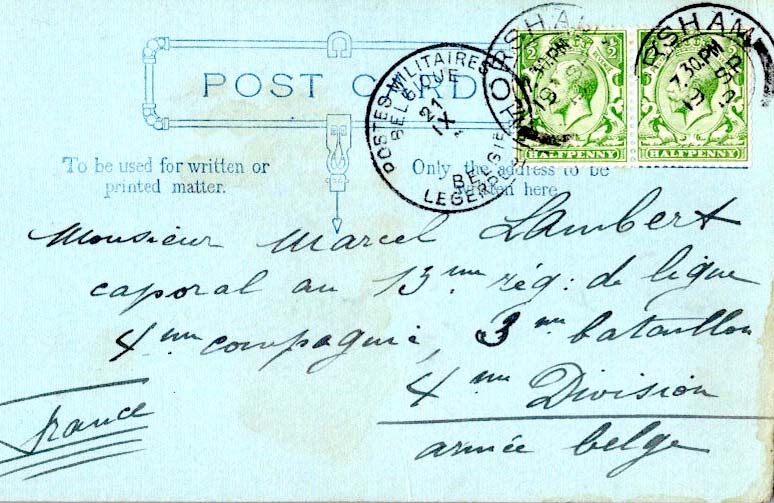 POST CARD
To be used for written or
printed matter.
Only the address to be
written here.
POSTES MILITAIRES
BELGIQUE
21
IX
BELGIE
LEGERPOST
HORSHAM
7.30 PM
19 SP
HALFPENNY
HORSHAM
7.30 PM
19 SP
HALFPENNY
Monsieur Marcel Lambert
caporal au 13me rég: de ligne
4me compagnie, 3me bataillon
4me Division
armée belge
France